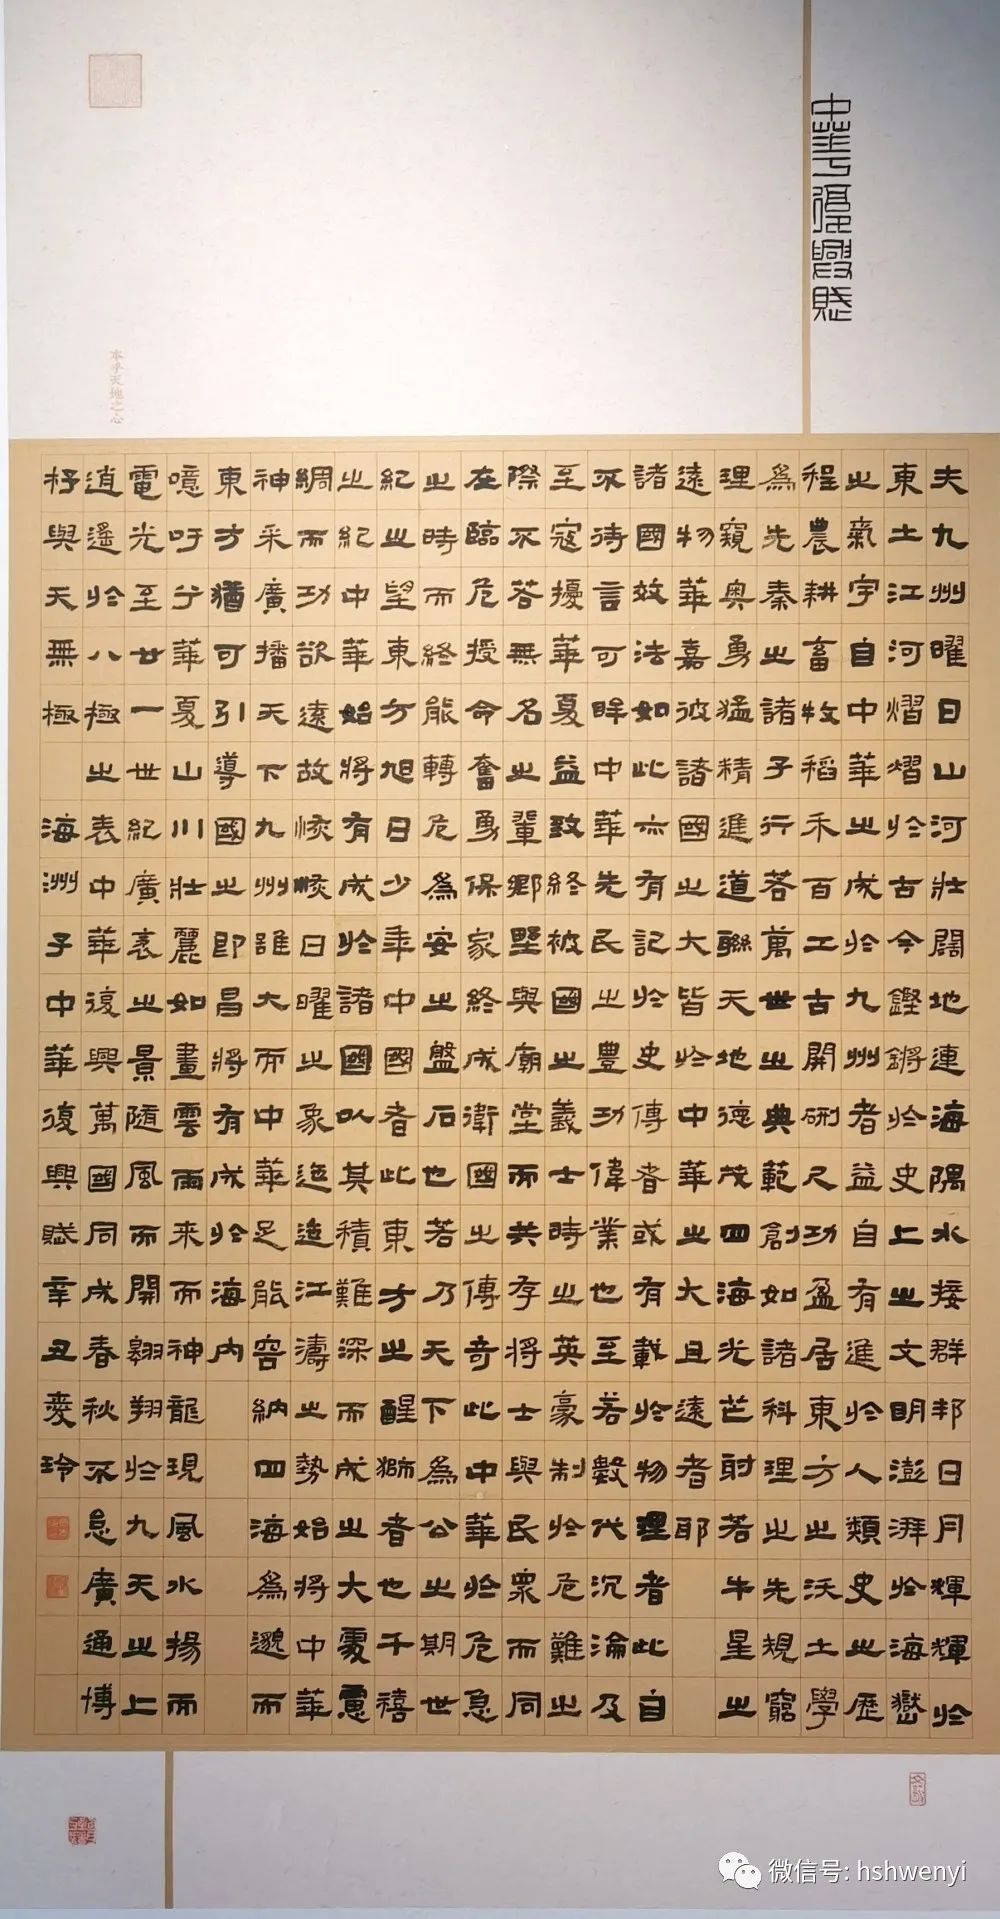 中華復興賦
本乎天地之心
夫九州曜日山河壯闊地連海隅水接群邦日月輝輝於
東土江河熠熠於古今鏗鏘於史上之文明澎湃於海嶽
之氣宇自中華之成於九州者益自有進於人類史之歷
程農耕畜牧稻禾百工古開硎尺功盈居東方之沃土學
為先秦之諸子行若萬世之典範創如諸科理之先規窮
理窺奧勇猛精進道聯天地德茂四海光芒射若牛星之
遠物華嘉彼諸國之大皆於中華之大且遠者耶
諸國效法如此亦有記於史傳者或有載於物理者此自
不待言可眸中華先民之豐功偉業也至若數代沉淪及
至寇擾華夏益致終被國之義士時之英豪制於危難之
際不若無名之輩鄉野與廟堂而共存將士與民眾而同
在臨危授命奮勇保家終成衛國之傳奇此中華於危急
之時而終能轉危為安之盤石也若乃天下為公之期世
紀之望東方旭日少年中國者此東方之醒獅者也千禧
之紀中華始將有成於諸國以其積難深而成之大憂慮
綢而功欲遠故悠悠日曜之象迤迤江濤之勢始將中華
神采廣播天下九州誰大而中華足能容納四海為邈而
東方猶可引導國之即昌將有成於海內
噫吁兮華夏山川壯麗如畫雲雨來而神龍現風水揚而
電光至廿一世紀廣袤之景隨風而開翱翔於九天之上
逍遙於八極之表中華復興萬國同成春秋不怠廣通博
杼與天無極 海洲子中華復興賦辛丑麥玲
微信号: hshwenyi